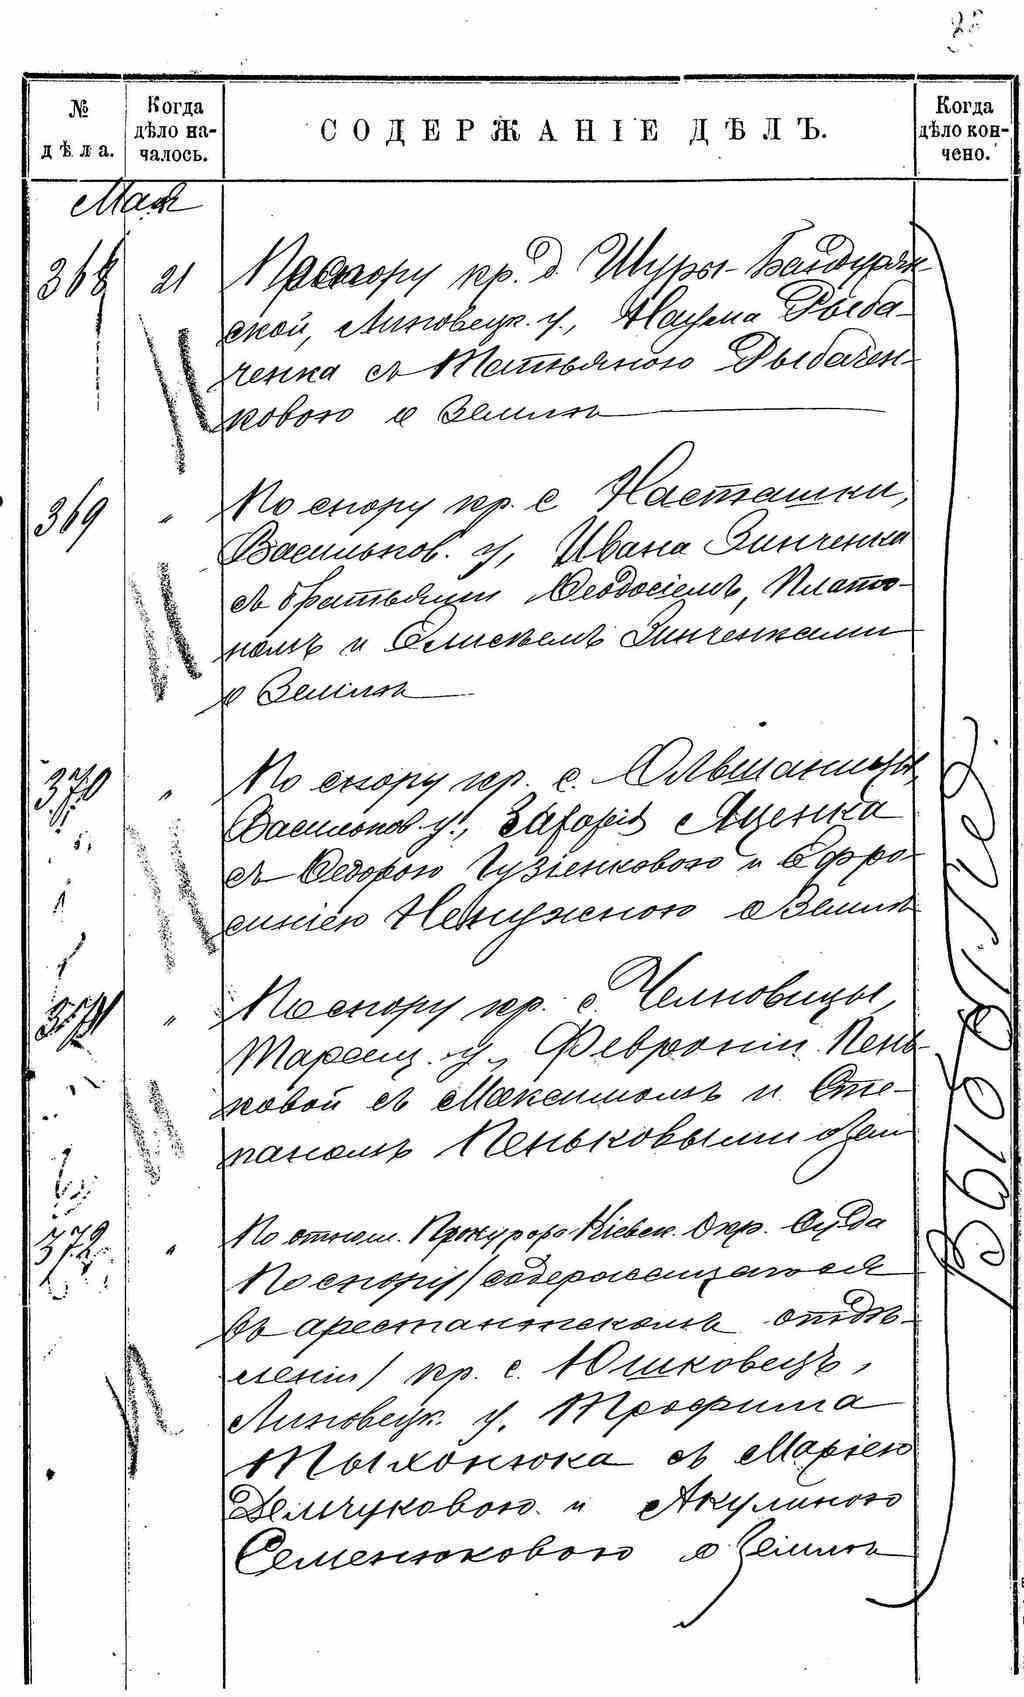 № дѣла.
Когда дѣло на-чалось.
СОДЕРЖАНІЕ ДѢЛЪ.
Когда дѣло кон-чено.
Мая
368 21 По спору кр. д. Шуры-Бондурян-
ской, Липовецк. у., Наума Рыба-
ченка съ Татьяною Рыбачен-
ковою о землѣ
369 " По спору кр. с. Насташки,
Васильков. у., Ивана Зинченка
съ братьями Ѳеодосіемъ, Плато-
номъ и Елисѣемъ Зинченками
о землѣ
370 " По спору кр. с. Ольшаницы,
Васильков. у., Захарія Яценка
съ Ѳедорою Гузіенковою и Ефро-
синіею Ненужною о землѣ
371 " По спору кр. с.
Таращ. у., Февроніи Пень-
ковой съ Максимомъ и Сте-
паномъ Пеньковыми о зем
372 " По отнош. Прокурора Кіевск. Окр. Суда
По спору /содержащагося
въ арестантскомъ отдѣ-
леніи/ кр. с. Юшковецъ,
Липовецк. у. Трофима
Тыхонюка съ Маріею
Демчуковою и Акулиною
Семенюковою о землѣ